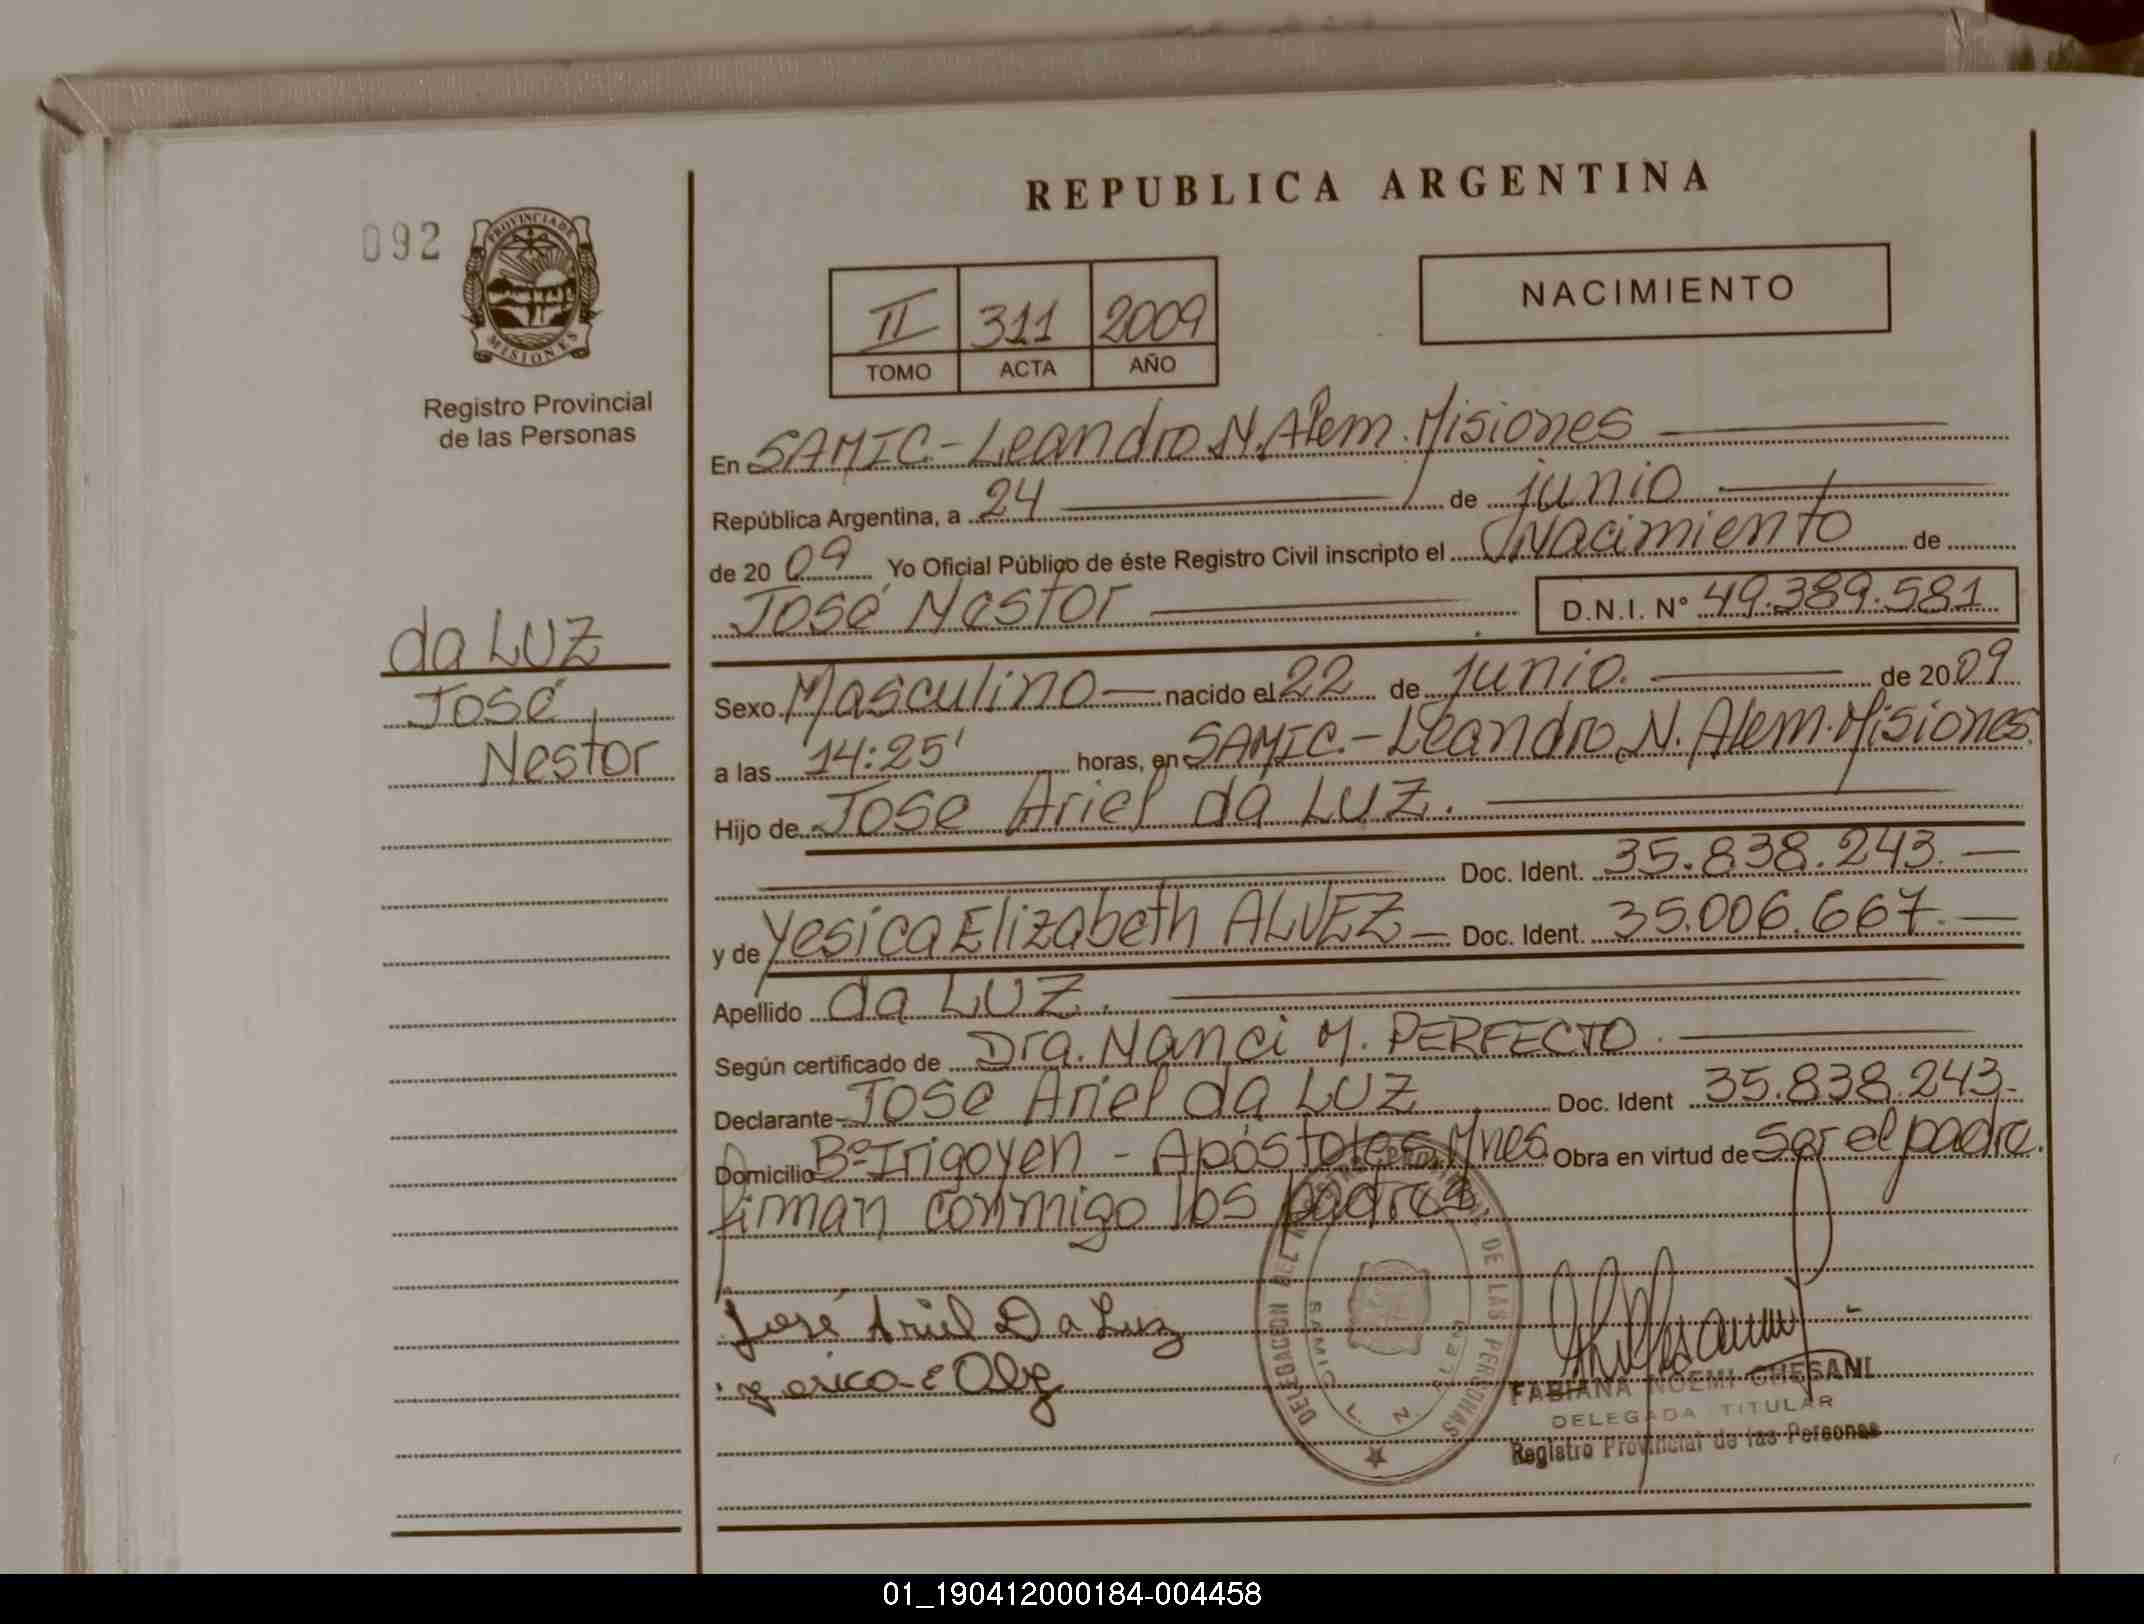 REPUBLICA ARGENTINA
092
PROVINCIA DE
MISIONES
Registro Provincial
de las Personas
II 311 2009
TOMO ACTA AÑO
NACIMIENTO
da LUZ
José
Nestor
En SAMIC.- Leandro N. Alem. Misiones
República Argentina, a 24 de junio
de 2009 Yo Oficial Público de éste Registro Civil inscripto el Nacimiento de
José Nestor D.N.I. N° 49.389.581
Sexo Masculino nacido el 22 de junio. de 2009
a las 14:25' horas, en SAMIC.- Leandro N. Alem. Misiones.
Hijo de Jose Ariel da LUZ.
Doc. Ident. 35.838.243.
y de Yesica Elizabeth ALVEZ Doc. Ident. 35.006.667.
Apellido da LUZ.
Según certificado de Dra. Nanci M. PERFECTO.
Declarante Jose Ariel da LUZ Doc. Ident 35.838.243.
Domicilio Bº Irigoyen - Apóstoles, Mnes. Obra en virtud de ser el padre.
firman conmigo los padres
José Ariel Da Luz
DELEGACION DEL REGISTRO PROVINCIAL DE LAS PERSONAS
SAMIC L. N. ALEM
FABIANA NOEMI CHESANI
DELEGADA TITULAR
Registro Provincial de las Personas
01_190412000184-004458